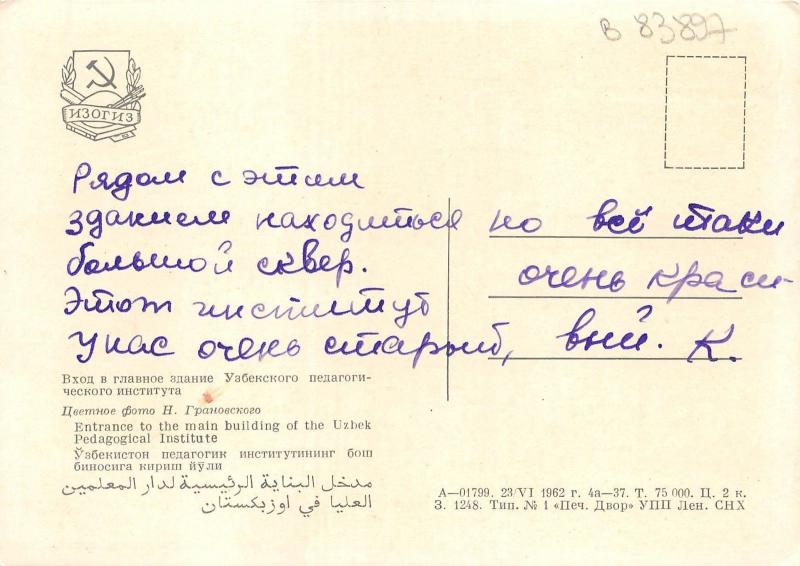 В 83897
ИЗОГИЗ
Рядом с этим
зданием находиться
большой сквер.
Этот институт
У нас очень старый,
но всё таки
очень краси-
вый. К.
Вход в главное здание Узбекского педагоги-
ческого института
Цветное фото Н. Грановского
Entrance to the main building of the Uzbek
Pedagogical Institute
Ўзбекистон педагогик институтининг бош
биносига кириш йўли
مدخل البناية الرئيسية لدار المعلمين
العليا في اوزبكستان
А—01799. 23/VI 1962 г. 4а—37. Т. 75 000. Ц. 2 к.
З. 1248. Тип. № 1 «Печ. Двор» УПП Лен. СНХ